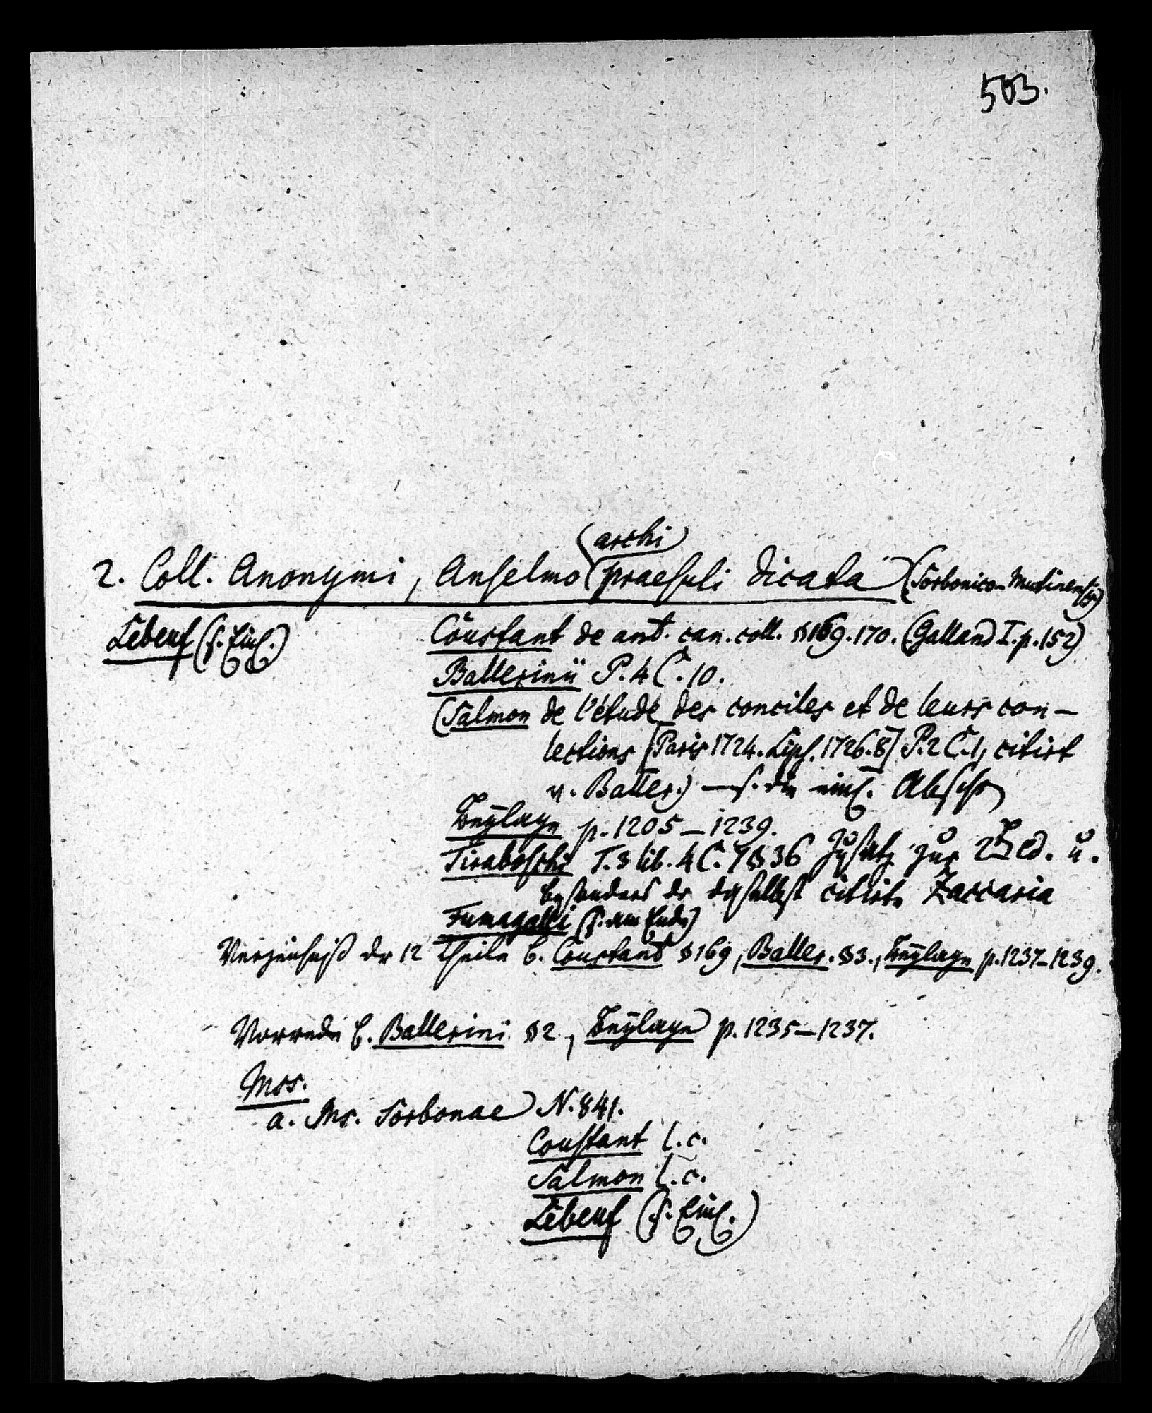 503.
(archi)
2. Coll. Anonymi, Anselmo praesuli dicata (Sorbonico-Mutinensis)
Lebeuf (s. Einl.)
Coustant de ant. can. coll. §169.170. (Galland I. p. 152)
Ballerinii P. 4 C. 10.
(Salmon de l'étude des conciles et de leurs con-
lections [Paris 1724. Lips. 1726. 8] P. 2 C. 1, citirt
v. Baller.) — s. die einz. Abschr
Beylage p. 1205–1239.
Tiraboschi T. 3 lib. 4 C. 7 §36 Zusatz zur 2 Ed. u.
besonders der daselbst citirte Zaccaria
Fumagalli (s. am Ende)
Verzeichniß der 12 Theile b. Coustant §169, Baller. §3., Beylage p. 1237–1239.
Vorrede b. Ballerini §2, Beylage p. 1235–1237.
Mss.
a. Ms. Sorbonae N. 841.
Coustant l. c.
Salmon l. c.
Lebeuf (s. Einl.)